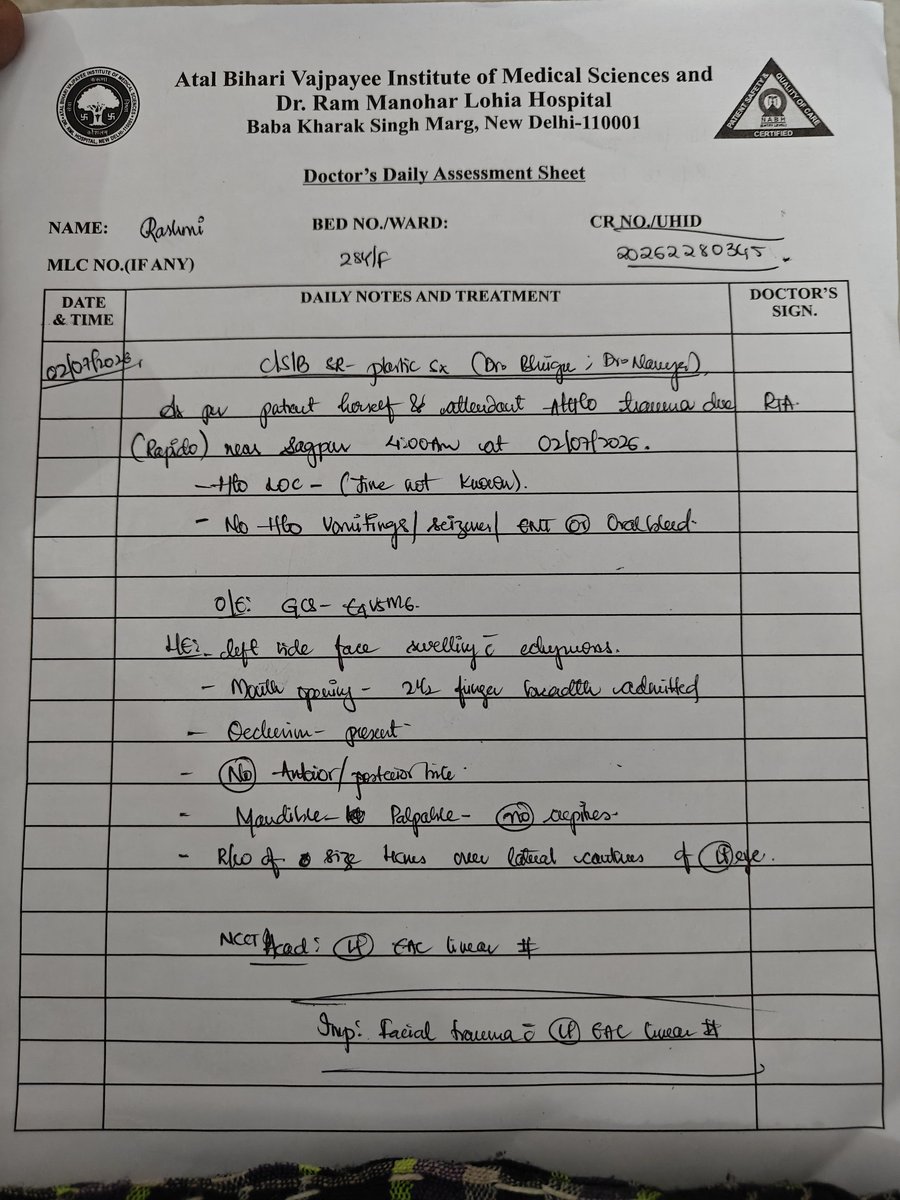 Atal Bihari Vajpayee Institute of Medical Sciences and
Dr. Ram Manohar Lohia Hospital
Baba Kharak Singh Marg, New Delhi-110001
PATIENT SAFETY & QUALITY OF CARE
NABH
CERTIFIED
Doctor's Daily Assessment Sheet
NAME: Rashmi BED NO./WARD: CR NO./UHID
MLC NO.(IF ANY) 284/F 20262280345
DATE & TIME DAILY NOTES AND TREATMENT DOCTOR'S SIGN.
02/07/2026 C/S/B SR- plastic Sx (Dr. ; Dr.
As per patient herself & attendant trauma due RTA
(Rapido) near 4:00AM at 02/07/2026.
- H/o LOC - (Time not known).
- No H/o Vomitings/ seizures/ ENT or Oral bleed
O/E: GCS- E4V5M6.
left side face swelling c̄
- Mouth opening - 2½ finger breadth admitted
- Occlusion- present
- No / posterior
- Mandible- Palpable- no
- of size over lateral of Lt eye.
NCCT Head: Lt EAC linear #
Imp: Facial trauma c̄ Lt EAC linear #